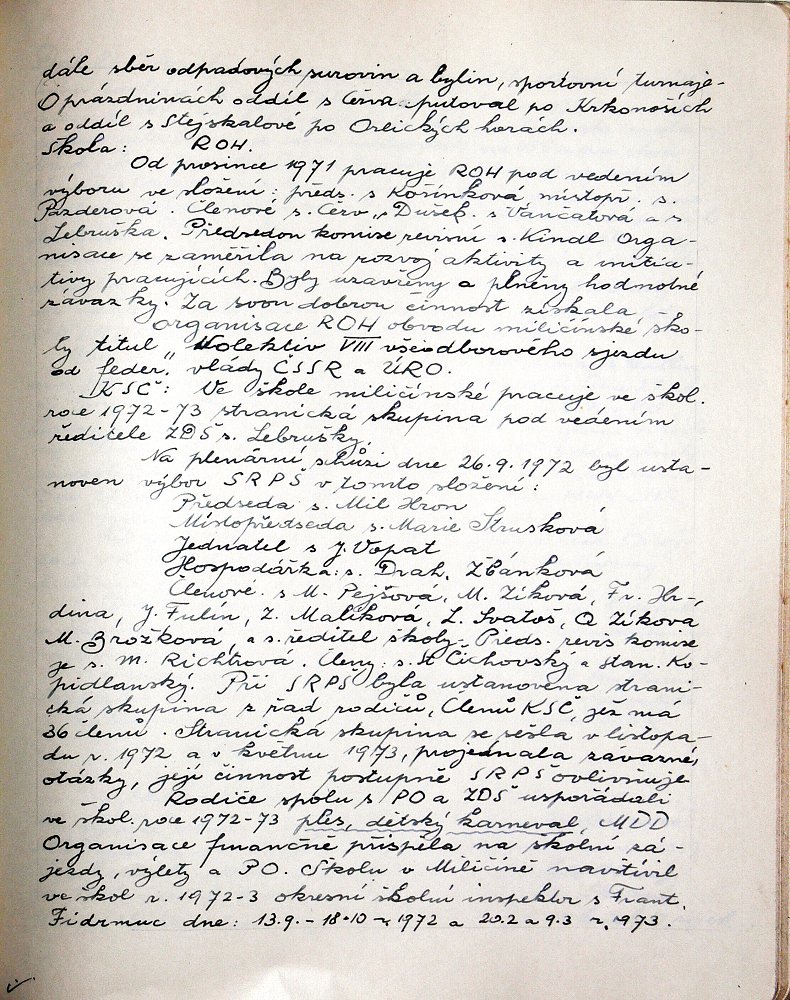 dále sběr odpadových surovin a bylin, sportovní turnaje.
O prázdninách oddíl s Červa putoval po Krkonoších
a oddíl s Stejskalové po Orlických horách.
Škola: ROH.
Od prosince 1971 pracuje ROH pod vedením
výboru ve složení: předs. s Košínková, místopř. s.
Pazderová. Členové s. Červ, Dušek. s Vančatová a s
Lebruška. Předsedou komise revisní s. Kindl Orga-
nisace se zaměřila na rozvoj aktivity a inicia-
tivy pracujících. Byly uzavřeny a plněny hodnotné
závazky. Za svou dobrou činnost získala
organisace ROH obvodu miličínské ško-
ly titul „Kolektiv VIII všeodborového sjezdu
od feder. vlády ČSSR a ÚRO.
KSČ: Ve škole miličínské pracuje ve škol.
roce 1972-73 stranická skupina pod vedením
ředitele ZDŠ s. Lebrušky.
Na plenární schůzi dne 26.9.1972 byl usta-
noven výbor SRPŠ v tomto složení:
Předseda s. Mil Hron
Místopředseda s. Marie Strusková
Jednatel s J. Vopat
Hospodářka: s. Drah. Zbánková
Členové: s M. Pejšova, M. Zíková, Fr. Hr-
dina, J. Fulín, Z. Malíková, L. Svatoš, O Zíkova
M. Brožková, a s. ředitel školy. Předs. revis komise
je s. M. Richtrová. Členy: s. St Čichovský a stan. Ko-
pidlanský. Při SRPŠ byla ustanovena strani-
cká skupina z řad rodičů, členů KSČ, jež má
36 členů. Stranická skupina se sešla v listopa-
du r. 1972 a v květnu 1973, projednala závazné
otázky, její činnost postupně SRPŠ ovlivňuje
Rodiče spolu s PO a ZDŠ uspořádali
ve škol. roce 1972-73 ples, dětský karneval, MDD
Organisace finančně přispěla na školní zá-
jezdy, výlety a PO. Školu v Miličíně navštívil
ve škol r. 1972-3 okresní školní inspektor s Frant.
Fidrmuc dne: 13.9. - 18.10 r. 1972 a 20.2 a 9.3 r. 1973.